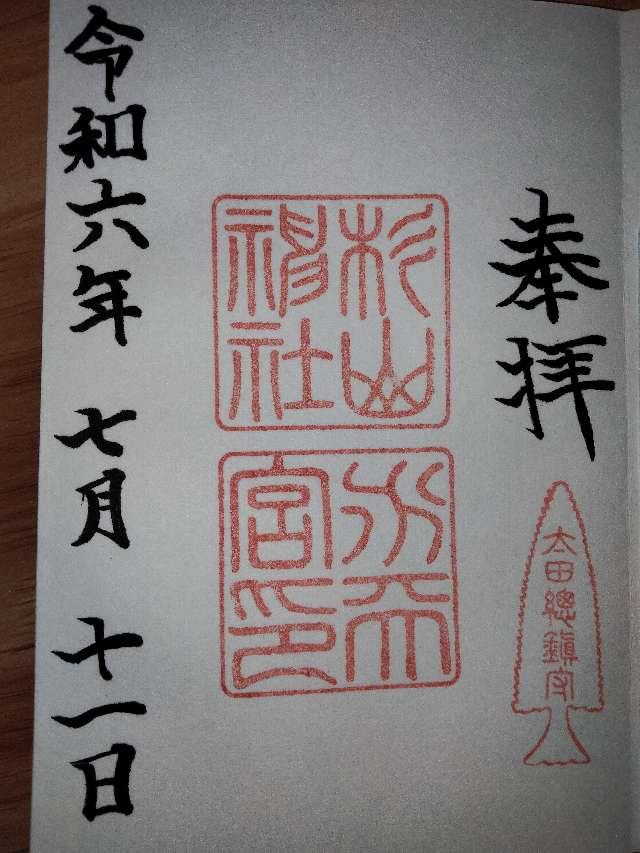 奉拝
太田總鎮守
杉山
神社
水天
宮印
令和六年 七月 十一日